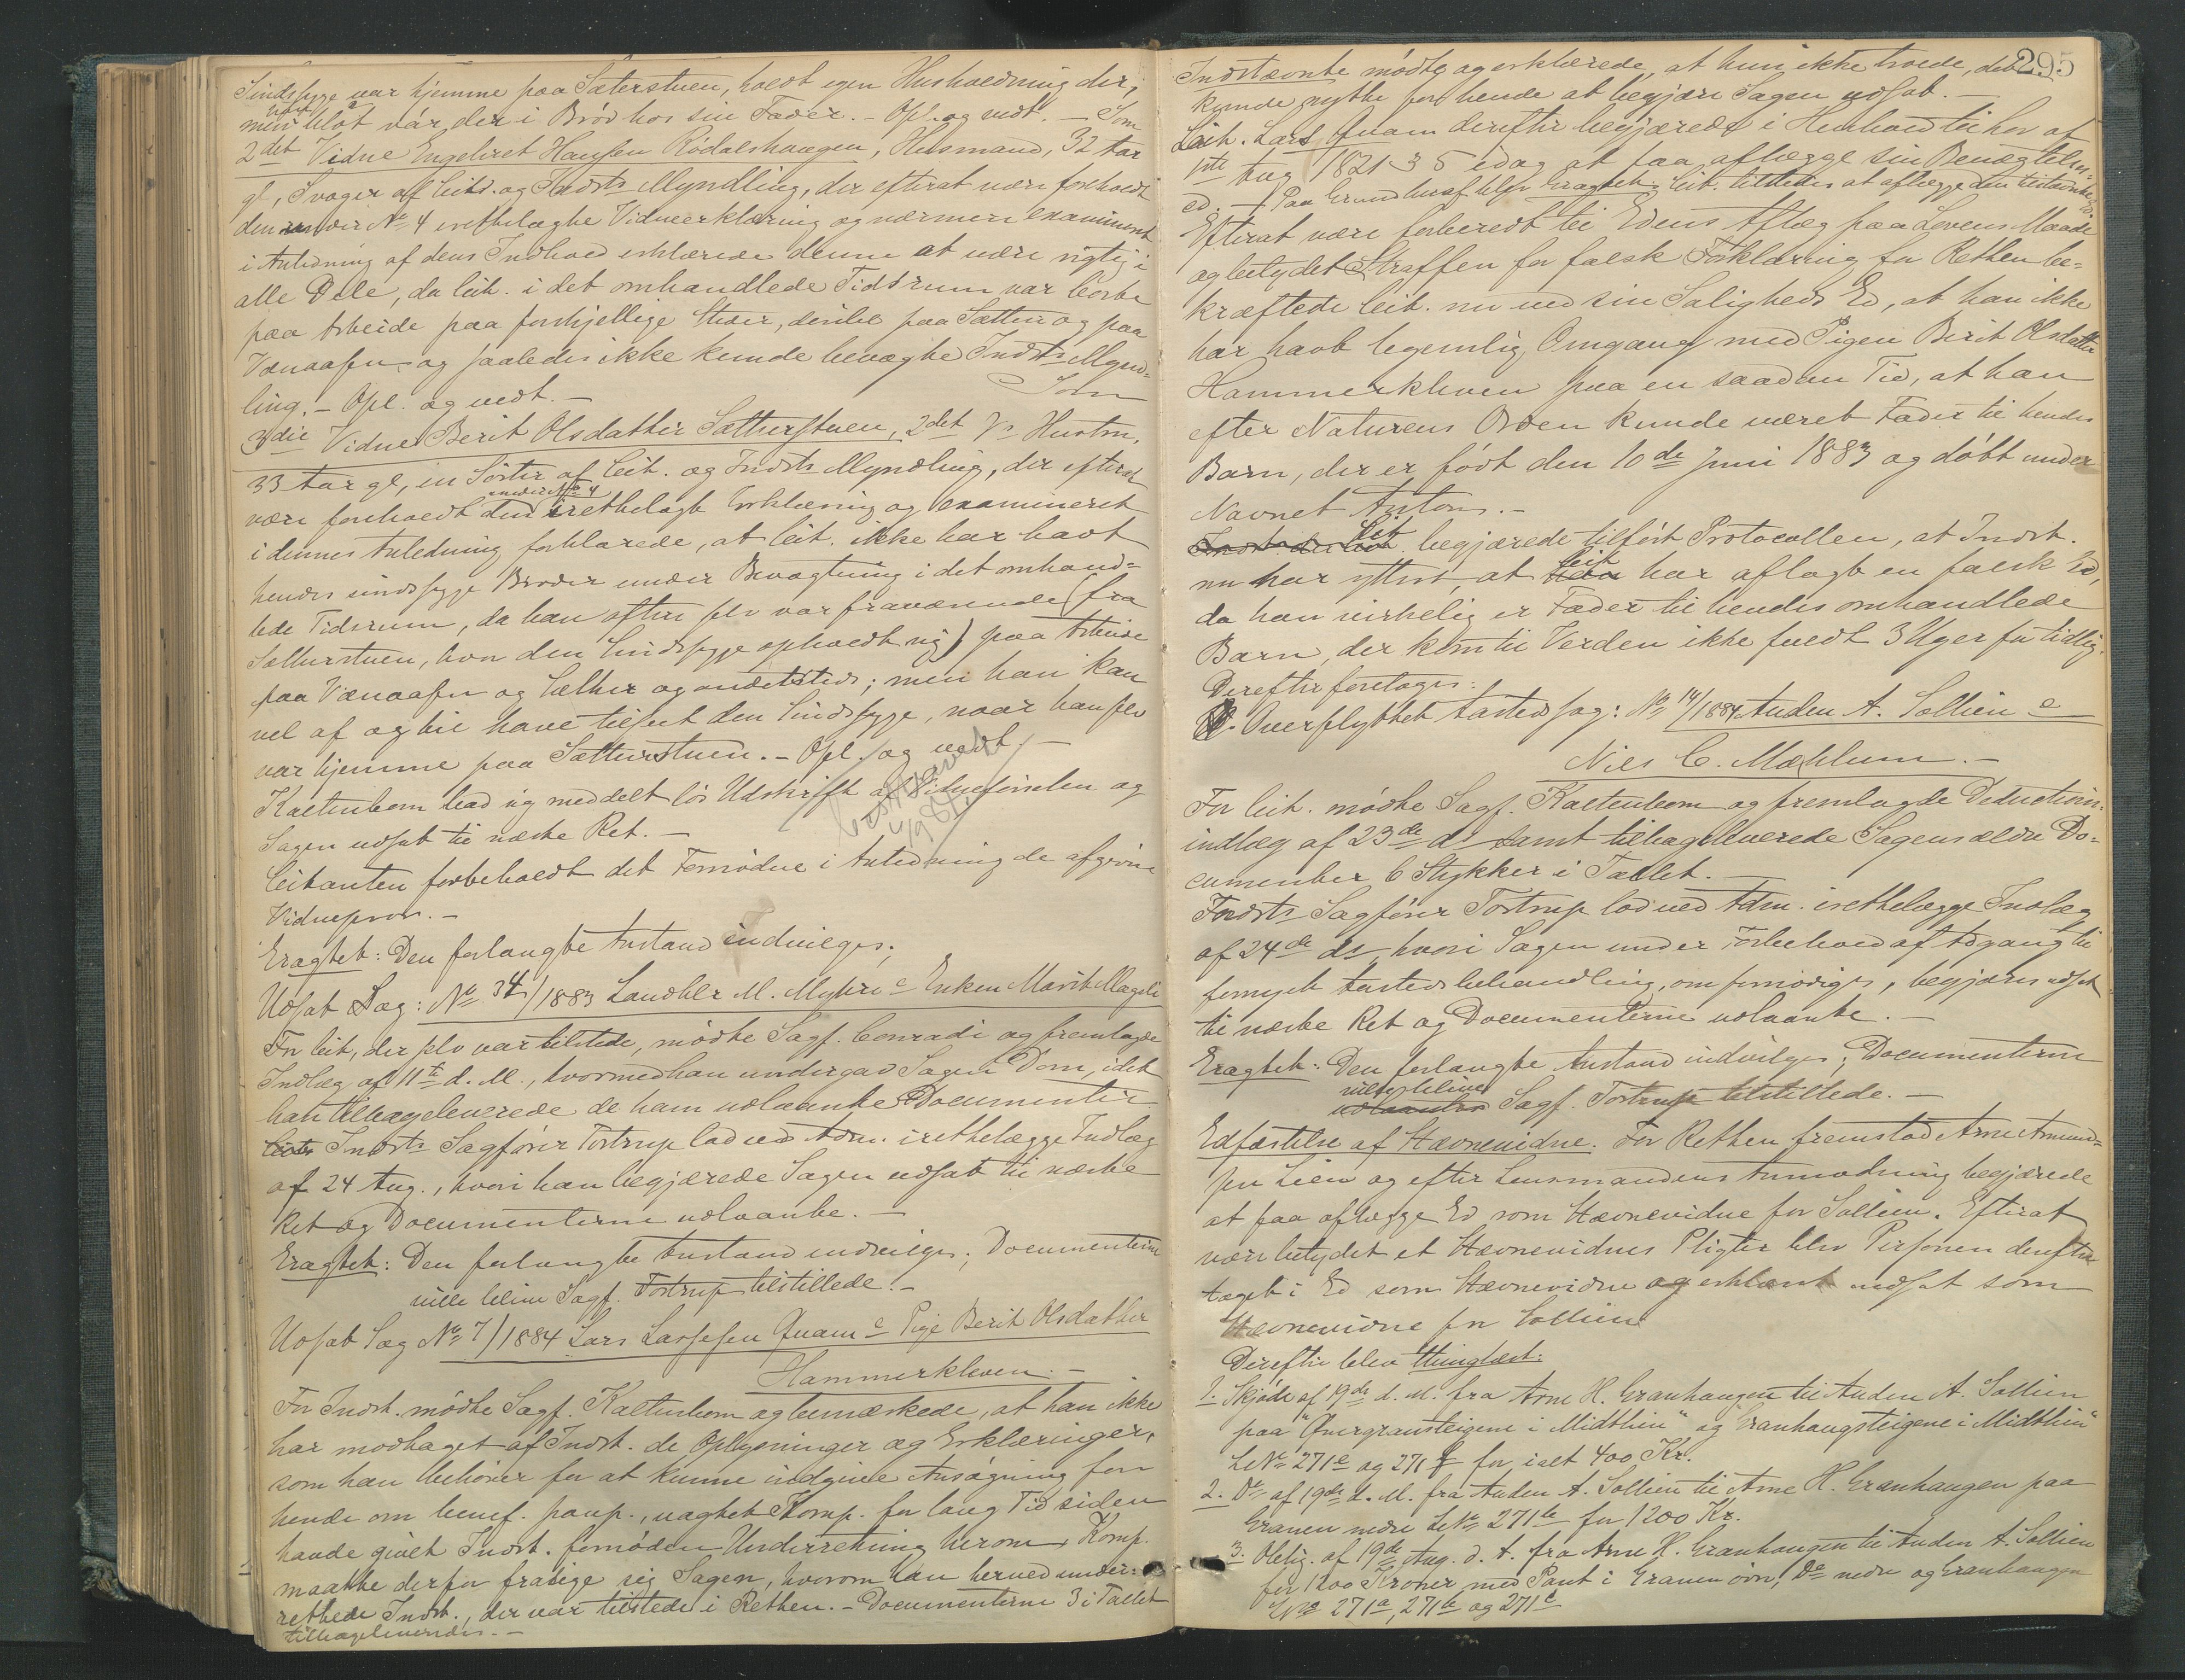 Sindssyge var hjemme paa Sæterstuen, holdt egen Husholdning der,
men blot var der i Brød hos sin Fader. – Opl. og vedt. – Som
2det Vidne Engebret Hansen Rødalshaugen, Husmand, 32 Aar
gl, Svoger af Cit. og Indsts Myndling, der efterat være foreholdt
den under No 4 irettelagte Vidneerklæring og nærmere examineret
i Anledning af dens Indhold erklærede denne at være rigtig i
alle Dele, da Cit. i det omhandlede Tidsrum var borte
paa Arbeide paa forskjellige Steder, deribl. paa Sætter og paa
Vænaasen og saaledes ikke kunde bevogte Indsts Mynd-
ling. – Opl. og vedt. – Som
3die Vidne Berit Olsdatter Sætterstuen, 2det Vs Hustru,
33 Aar gl, en Søster af Cit. og Indsts Myndling, der efterat
være foreholdt den under No 4 irettelagte Erklæring og examineret
i dennes Anledning forklarede, at Cit. ikke har havt
hendes sindssyge Broder under Bevogtning i det omhand-
lede Tidsrum, da han oftere selv var fraværende (fra
Sætterstuen, hvor den Sindssyge opholdt sig) paa Arbeide
paa Vænaasen og Sætter og andetsteds; men han kan
vel af og til have tilseet den Sindssyge, naar han selv
var hjemme paa Sætterstuen. – Opl. og vedt. –
Kaltenborn bad sig meddelt løs Udskrift af Vidneførselen og
Sagen udsat til næste Ret. –
Citanten forbeholdt det Fornødne i Anledning de afgivne
Vidneprov. –
Eragtet: Den forlangte Anstand indvilges.
Udsat Sag: No 34/1883 Landhlr M. Myhre c Enken Marit Mageli
For Cit., der selv var tilstede, mødte Sagf. Conradi og fremlagde
Indlæg af 11te d. M., hvormed han undergav Sagen Dom, idet
han tilbageleverede de ham udlaante Documenter
Indsts Sagfører Tostrup lod ved Adm. irettelægge Indlæg
af 24 Aug., hvori han begjærede Sagen udsat til næste
Ret og Documenterne udlaante. –
Eragtet: Den forlangte Anstand indvilges; Documenterne
ville blive Sagf. Tostrup tilstillede. –
Udsat Sag No 7/1884 Lars Larsesen Quam c Pige Berit Olsdatter
Hammerkleven. –
For Indst. mødte Sagf. Kaltenborn og bemærkede, at han ikke
har modtaget af Indst. de Oplysninger og Erklæringer,
som han behøver for at kunne indgive Ansøgning for
hende om benef. paup., uagtet Komp. for lang Tid siden
havde givet Indst. fornøden Underretning herom, Komp.
maatte derfor frasige sig Sagen, hvorom han herved under-
rettede Indst., der var tilstede i Retten. – Documenterne 3 i Tallet
tilbageleveredes. –
295
Indstævnte mødte og erklærede, at hun ikke troede, det
kunde nytte for hende at begjære Sagen udsat. –
Cit. Lars Quam derefter begjærede i Henhold til Lov af
1ste Aug 1821 § 5 idag at faa aflægge sin Benægtelses-
ed. – Paa Grund heraf blev Eragtet: Cit. tilstedes at aflægge den tilstævnte Ed
Efterat være forberedt til Edens Aflæg paa Lovens Maade
og betydet Straffen for falsk Forklaring for Retten be-
kræftede Cit. nu ved sin Saligheds Ed, at han ikke
har havt legemlig Omgang med Pigen Berit Olsdatter
Hammerkleven paa en saadan Tid, at han
efter Naturens Orden kunde været Fader til hendes
Barn, der er født den 10de Juni 1883 og døbt under
Navnet Anton. –
Cit. begjærede tilført Protocollen, at Indst.
nu har yttret, at Cit. har aflagt en falsk Ed,
da han virkelig er Fader til hendes omhandlede
Barn, der kom til Verden ikke fuldt 3 Uger for tidlig.
Derefter foretages:
Overflyttet Aastedssag: No 14/1884 Anden A. Sollien c
Niels C. Mæhlum. –
For Cit. mødte Sagf. Kaltenborn og fremlagde Deductions-
indlæg af 23de ds samt tilbageleverede Sagens ældre Do-
cumenter 6 Stykker i Tallet. –
Indsts Sagfører Tostrup lod ved Adm. irettelægge Indlæg
af 24de ds, hvori Sagen under Forbehold af Adgang til
fornyet Aastedsbehandling, om fornødiges, begjæres udsat
til næste Ret og Documenterne udlaante. –
Eragtet: Den forlangte Anstand indvilges; Documenterne
ville blive Sagf. Tostrup tilstillede. –
Edfæstelse af Stævnevidne. For Retten fremstod Arne Amund-
sen Lien og efter Lensmandens Anmodning begjærede
at faa aflægge Ed som Stævnevidne for Sollien. Efterat
være betydet et Stævnevidnes Pligter blev Personen derefter
taget i Ed som Stævnevidne og erklæret indsat som
Stævnevidne for Sollien
Derefter blev thinglæst:
1. Skjøde af 19de d. M. fra Arne H. Granhaugen til Anden A. Sollien
paa "Øvergransteigene i Midtlien" og Granhaugsteigene i Midtlien"
LNo 271e og 271f for ialt 400 Kr.
2. Do af 19de d. M. fra Anden A. Sollien til Arne H. Granhaugen paa
Granen nedre LNo 271b for 1200 Kr.
3. Oblig. af 19de Aug. d. A. fra Arne H. Granhaugen til Anden A. Sollien
for 1200 Kroner med Pant i Granen øvre, Do nedre og Granhaugen
LNo 271a, 271b og 271c